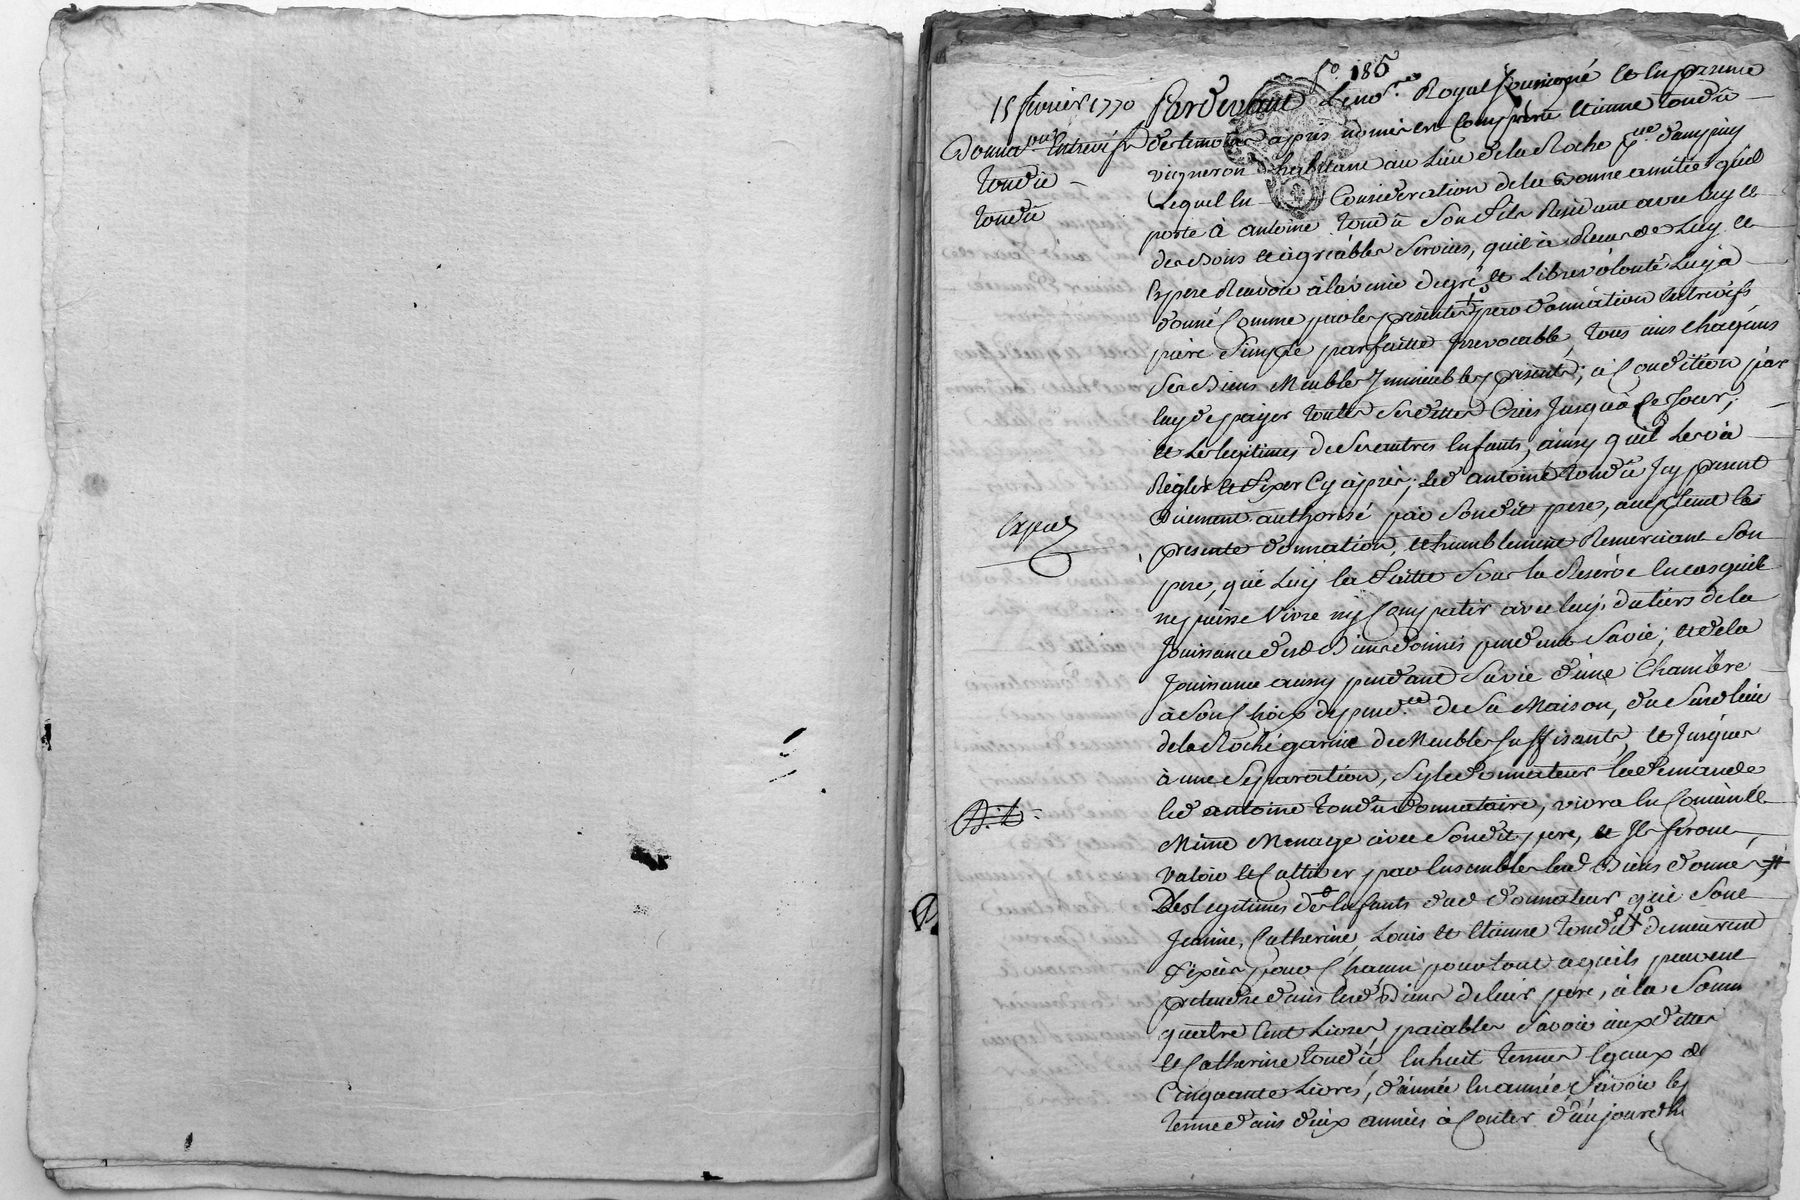 fo 185
15 fevrier 1770
Donnaon Entrevifs
tondû
tondû
Expiéz
Pardevant Le nore Royal soussigné et En presence
des temoins apres només est Comparu Etienne tondû
vigneron habitant au Lieu de la Roche psse d'ampuy
Lequel En Consideration de la Bonne amitié quil
porte à antoine tondû Son fils Residant avec luy et
des Bons et agreables Services, quil à Reçus de Luy et
Espere Recevoir à lavenir de gré et Libre volonté Luy à
donné Comme par les presentes par donnation Entrevifs
pure Simple parfaitte Irrevocable, tous uns Chaquns
Ses Biens Meubles Immeubles presents, à Condition par
luy de payer toutes Ses dettes Crées Jusqu'à Ce Jour,
et Les legitimes de Ses autres Enfants, ainsy quil Les và
Regler et fixer Cy après; led antoine tondû Icy present
Duement authorisé par Son dit pere, acceptent la
presente donnation, et humblement Remerciant Son
pere, qui Luy la faitte Sous la Reserve En cas quil
ne puisse Vivre ny Compatir avec luy, du tiers de la
Jouissance desd Biens donnés pendent Sa vie; et de la
Jouissance aussy pendant Sa vie d'une Chambre
à Son Choix depende de Sa Maison, du Susd lieu
de la Roche garnie de Meubles Suffisants, et Jusques
à une Separation, Sy le donnateur la demande
led antoine tondû donnataire, vivra En Comun Et
Même Menage avec Son dit pere, et Ils feront
valoir et Cultiver par Ensembles lesd Biens donnés #
Les legitimes des Enfants dud donnateur qui Sont
Jeanne, Catherine, Louis et Etienne tondû demeurent
fixées pour Chacun pour tout ce quils peuvent
pretendre dans lesd Biens de leur pere, à la Somm
quatre Cent Livres, paiables Savoir aux dittes
et Catherine tondû, En huit termes Egaux de
Cinquante Livres, d'année En année, Savoir le p
terme dans deux années à Conter d'aujourdh